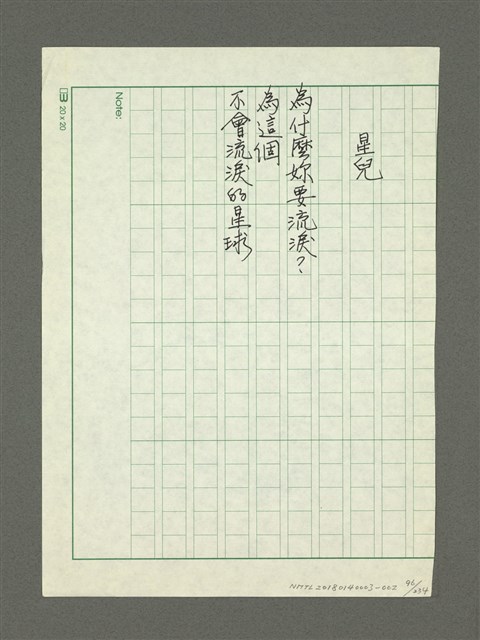 星兒
為什麼妳要流淚？
為這個
不會流淚的星球
Note:
20x20
NMTL20180140003-002
96/234